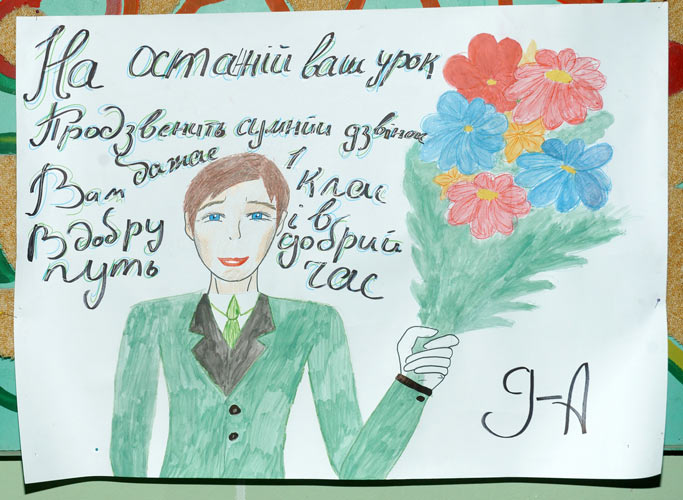 На останій ваш урок
Продзвенить сумний дзвінок
Вам бажає 1 клас
В добру і в добрий
путь час
9-А